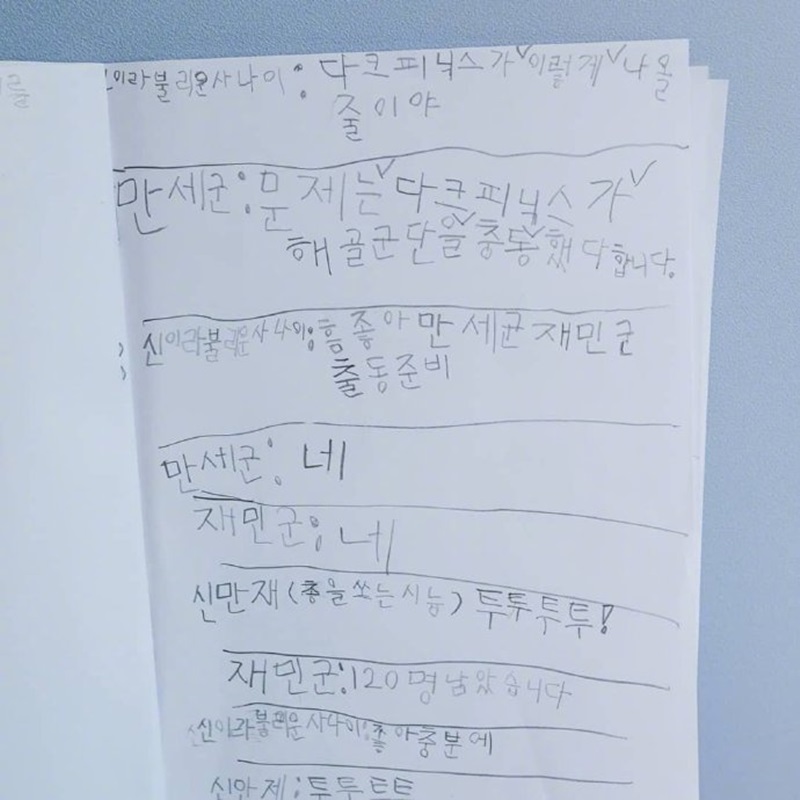 신이라불리운사나이: 다크피닉스가 이렇게 나올
줄이야
만세군:문제는 다크피닉스가
해골군단을 충동했다합니다.
신이라불리운사나이:흠좋아만세군재민군
출동준비
만세군: 네
재민군: 네
신만재(총을쏘는시늉)투튜투투!
재민군:120명남았습니다
신이라불리운사나이:좋아충분에
신만제:투투트트